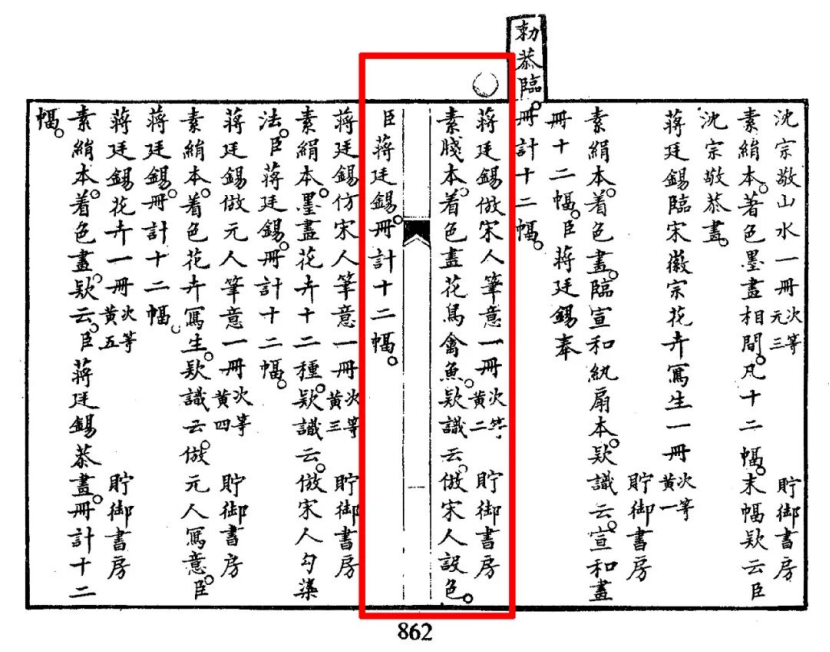 沈宗敬山水一冊次等元三　貯御書房
素絹本。著色墨畫相間。凡十二幅。末幅欵云。臣
沈宗敬恭畫。
蔣廷錫臨宋徽宗花卉寫生一冊次等黃一　貯御書房
素絹本。着色畫。臨宣和紈扇本。欵識云。宣和畫
冊十二幅。臣蔣廷錫奉
勅恭臨。冊計十二幅。
蔣廷錫倣宋人筆意一冊次等黃二　貯御書房
素牋本。着色畫花鳥禽魚。欵識云。倣宋人設色。
臣蔣廷錫。冊計十二幅。
蔣廷錫仿宋人筆意一冊次等黃三　貯御書房
素絹本。墨畫花卉十二種。欵識云。倣宋人勾染
法。臣蔣廷錫。冊計十二幅。
蔣廷錫倣元人筆意一冊次等黃四　貯御書房
素絹本。着色花卉寫生。欵識云。倣元人寫意。臣
蔣廷錫。冊計十二幅。
蔣廷錫花卉一冊次等黃五　貯御書房
素絹本。着色畫。欵云。臣蔣廷錫恭畫。冊計十二
幅。
862